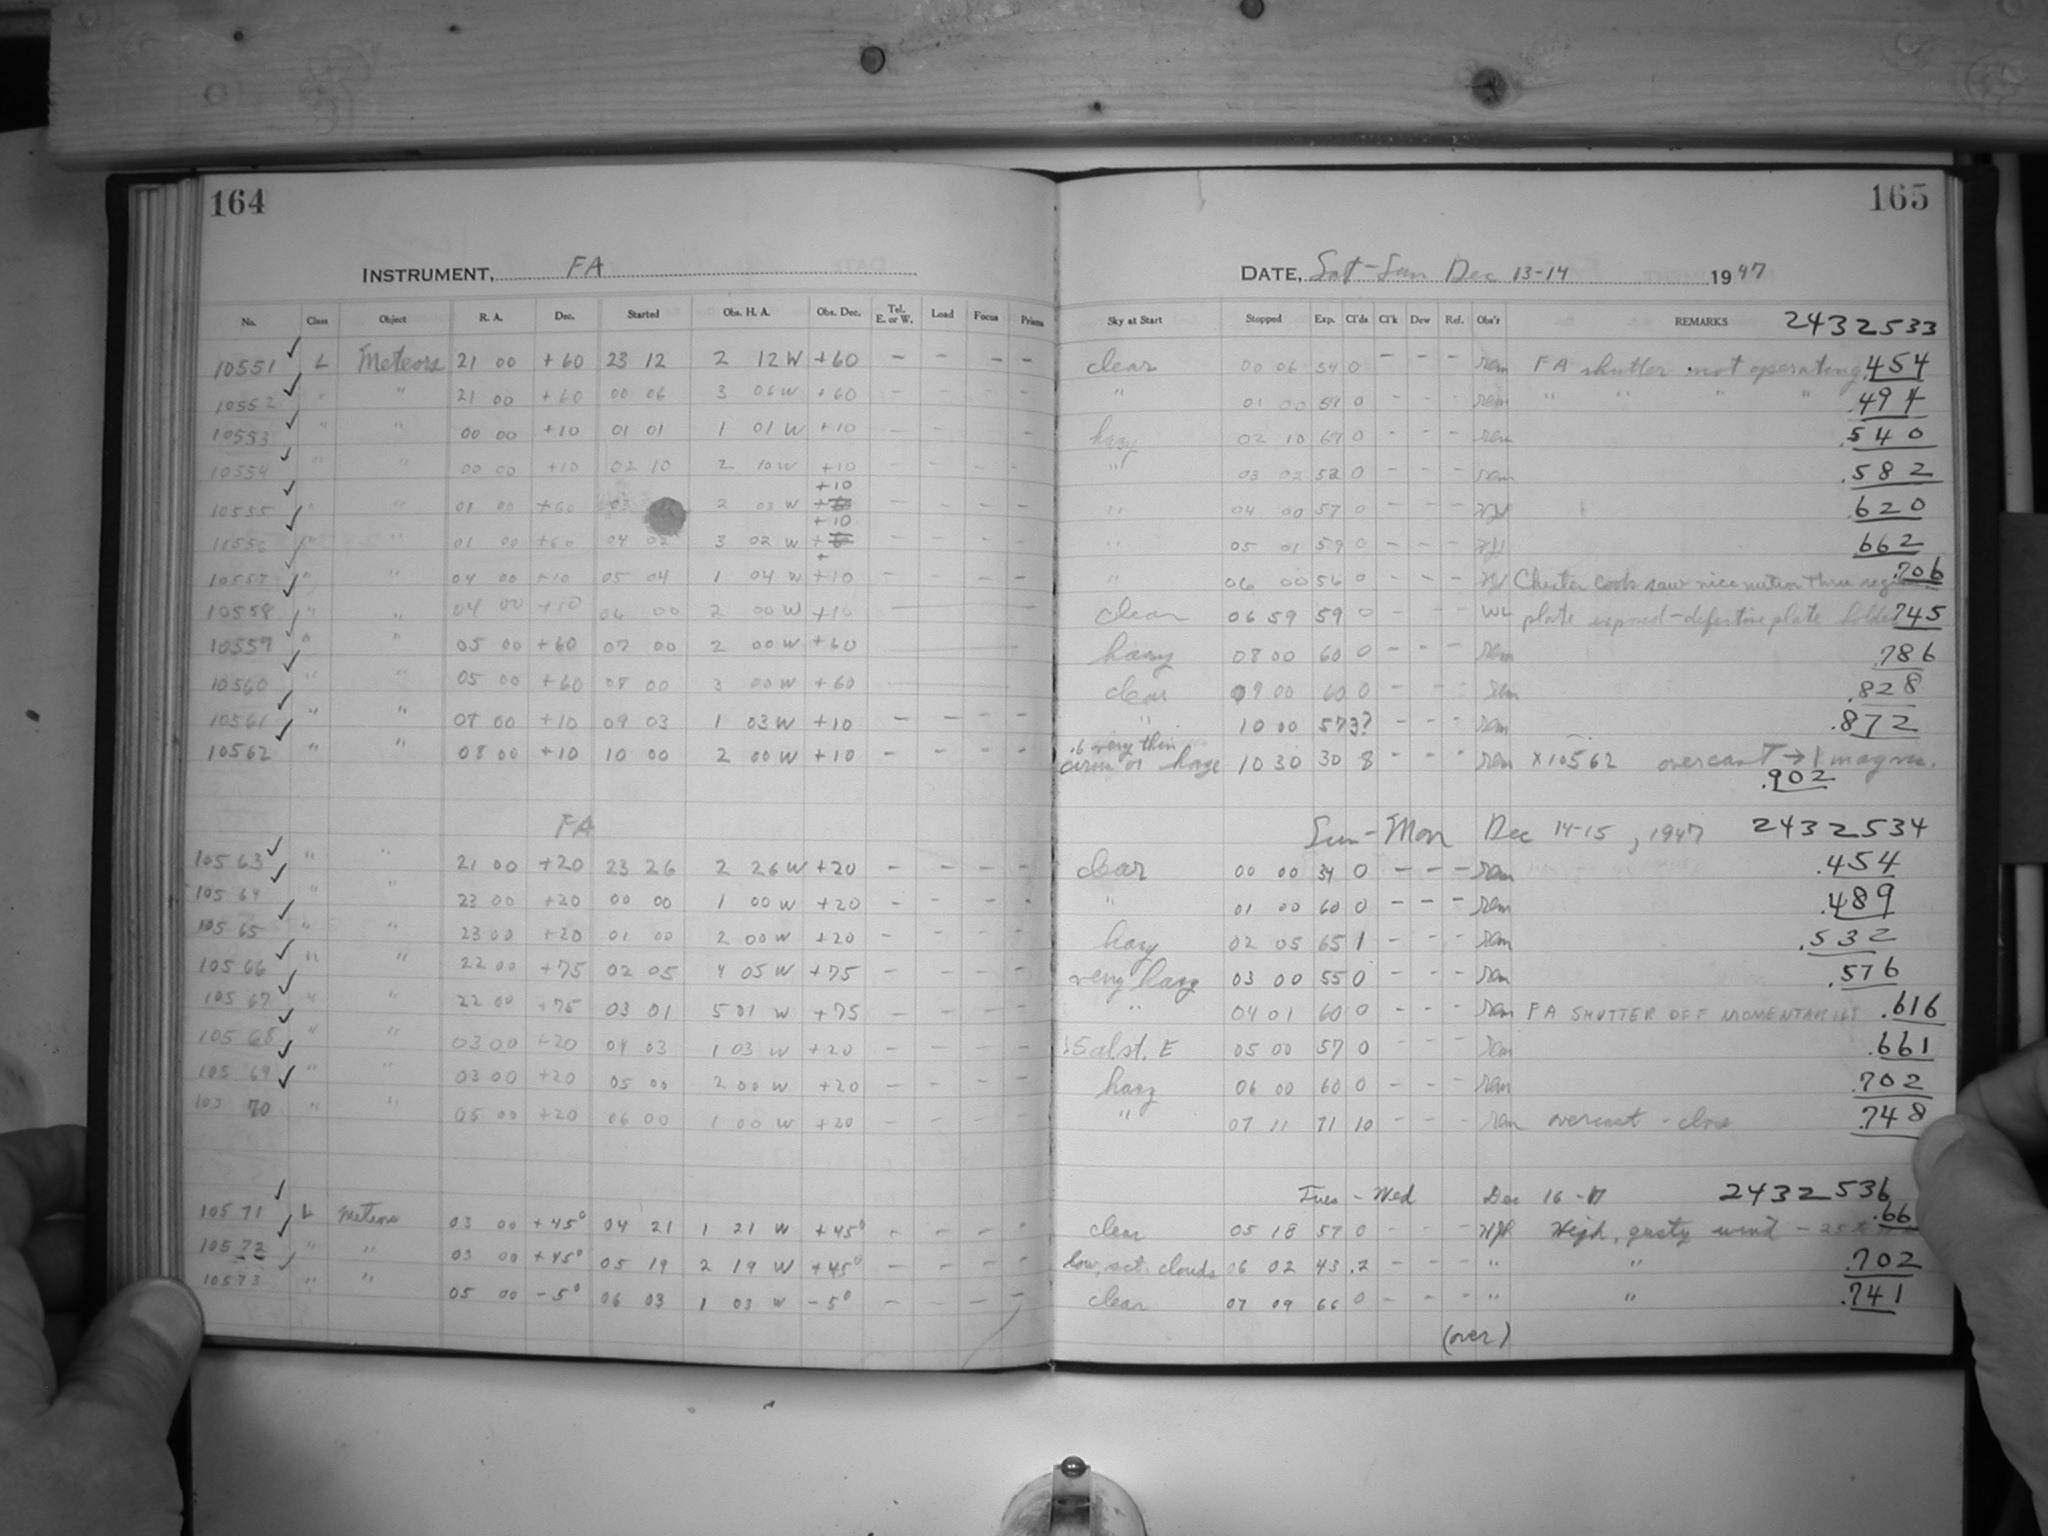 164
165
INSTRUMENT, FA
DATE, Sat-Sun Dec 13-14 1947
No. Class Object R. A. Dec. Started Obs. H. A. Obs. Dec. Tel. E. or W. Load Focus Prisms Sky at Start Stopped Exp. Cl'ds Cl'k Dew Ref. Obs'r REMARKS 2432533
10551 ✓ L Meteors 21 00 +60 23 12 2 12 W +60 - - - - clear 00 06 54 0 - - - rem FA shutter not operating .454
10552 ✓ " " 21 00 +60 00 06 3 06 W +60 - - - " 01 00 54 0 - - - rem " " " " .494
10553 ✓ " " 00 00 +10 01 01 1 01 W +10 - - - hazy 02 10 69 0 - - - rem .540
10554 ✓ " " 00 00 +10 02 10 2 10 W +10 - - - - " 03 02 52 0 - - - rem .582
10555 ✓ " " 01 00 +60 03 2 03 W +10 - - - - " 04 00 57 0 - - - .620
10556 ✓ " " 01 00 +60 04 02 3 02 W +10 - - - - " 05 01 59 0 - - - .662
10557 ✓ " " 04 00 +10 05 04 1 04 W +10 - - - - " 06 00 56 0 - - - Chester Cook saw nice meteor thru region .706
10558 ✓ " " 04 00 +10 06 00 2 00 W +10 clear 06 59 59 0 - - - WL plate exposed - defective plate holder .745
10559 " " 05 00 +60 07 00 2 00 W +60 hazy 08 00 60 0 - - - rem .786
10560 ✓ " " 05 00 +60 08 00 3 00 W +60 clear 09 00 60 0 - - - rem .828
10561 ✓ " " 08 00 +10 09 03 1 03 W +10 - - - - " 10 00 57 3? - - - rem .872
10562 ✓ " " 08 00 +10 10 00 2 00 W +10 - - - - .6 very thin cirrus or haze 10 30 30 8 - - - rem x10562 overcast → 1 magn.
.902
FA Sun - Mon Dec 14-15, 1947 2432534
10563 ✓ " " 21 00 +20 23 26 2 26 W +20 - - - - clear 00 00 34 0 - - - rem .454
10564 ✓ " " 23 00 +20 00 00 1 00 W +20 - - - - " 01 00 60 0 - - - rem .489
10565 ✓ " " 23 00 +20 01 00 2 00 W +20 - - - - hazy 02 05 65 1 - - - rem .532
10566 ✓ " " 22 00 +75 02 05 4 05 W +75 - - - - very hazy 03 00 55 0 - - - rem .576
10567 ✓ " " 22 00 +75 03 01 5 01 W +75 - - - - " 04 01 60 0 - - - rem FA SHUTTER OFF MOMENTARILY .616
10568 ✓ " " 03 00 +20 04 03 1 03 W +20 - - - - 05 00 57 0 - - - rem .661
10569 ✓ " " 03 00 +20 05 00 2 00 W +20 - - - - hazy 06 00 60 0 - - - rem .702
10570 " " 05 00 +20 06 00 1 00 W +20 - - - - " 07 11 71 10 - - - rem overcast - close .748
Tues - Wed Dec 16 - 17 2432536
10571 ✓ L Meteors 03 00 +45° 04 21 1 21 W +45° - - - - clear 05 18 57 0 - - - High, gusty wind - 25 .66
10572 ✓ " " 03 00 +45° 05 19 2 19 W +45° - - - - low, sct. clouds 06 02 43 .2 - - - " " .702
10573 ✓ " " 05 00 -5° 06 03 1 03 W -5° - - - - clear 07 09 66 0 - - - " " .741
(over)